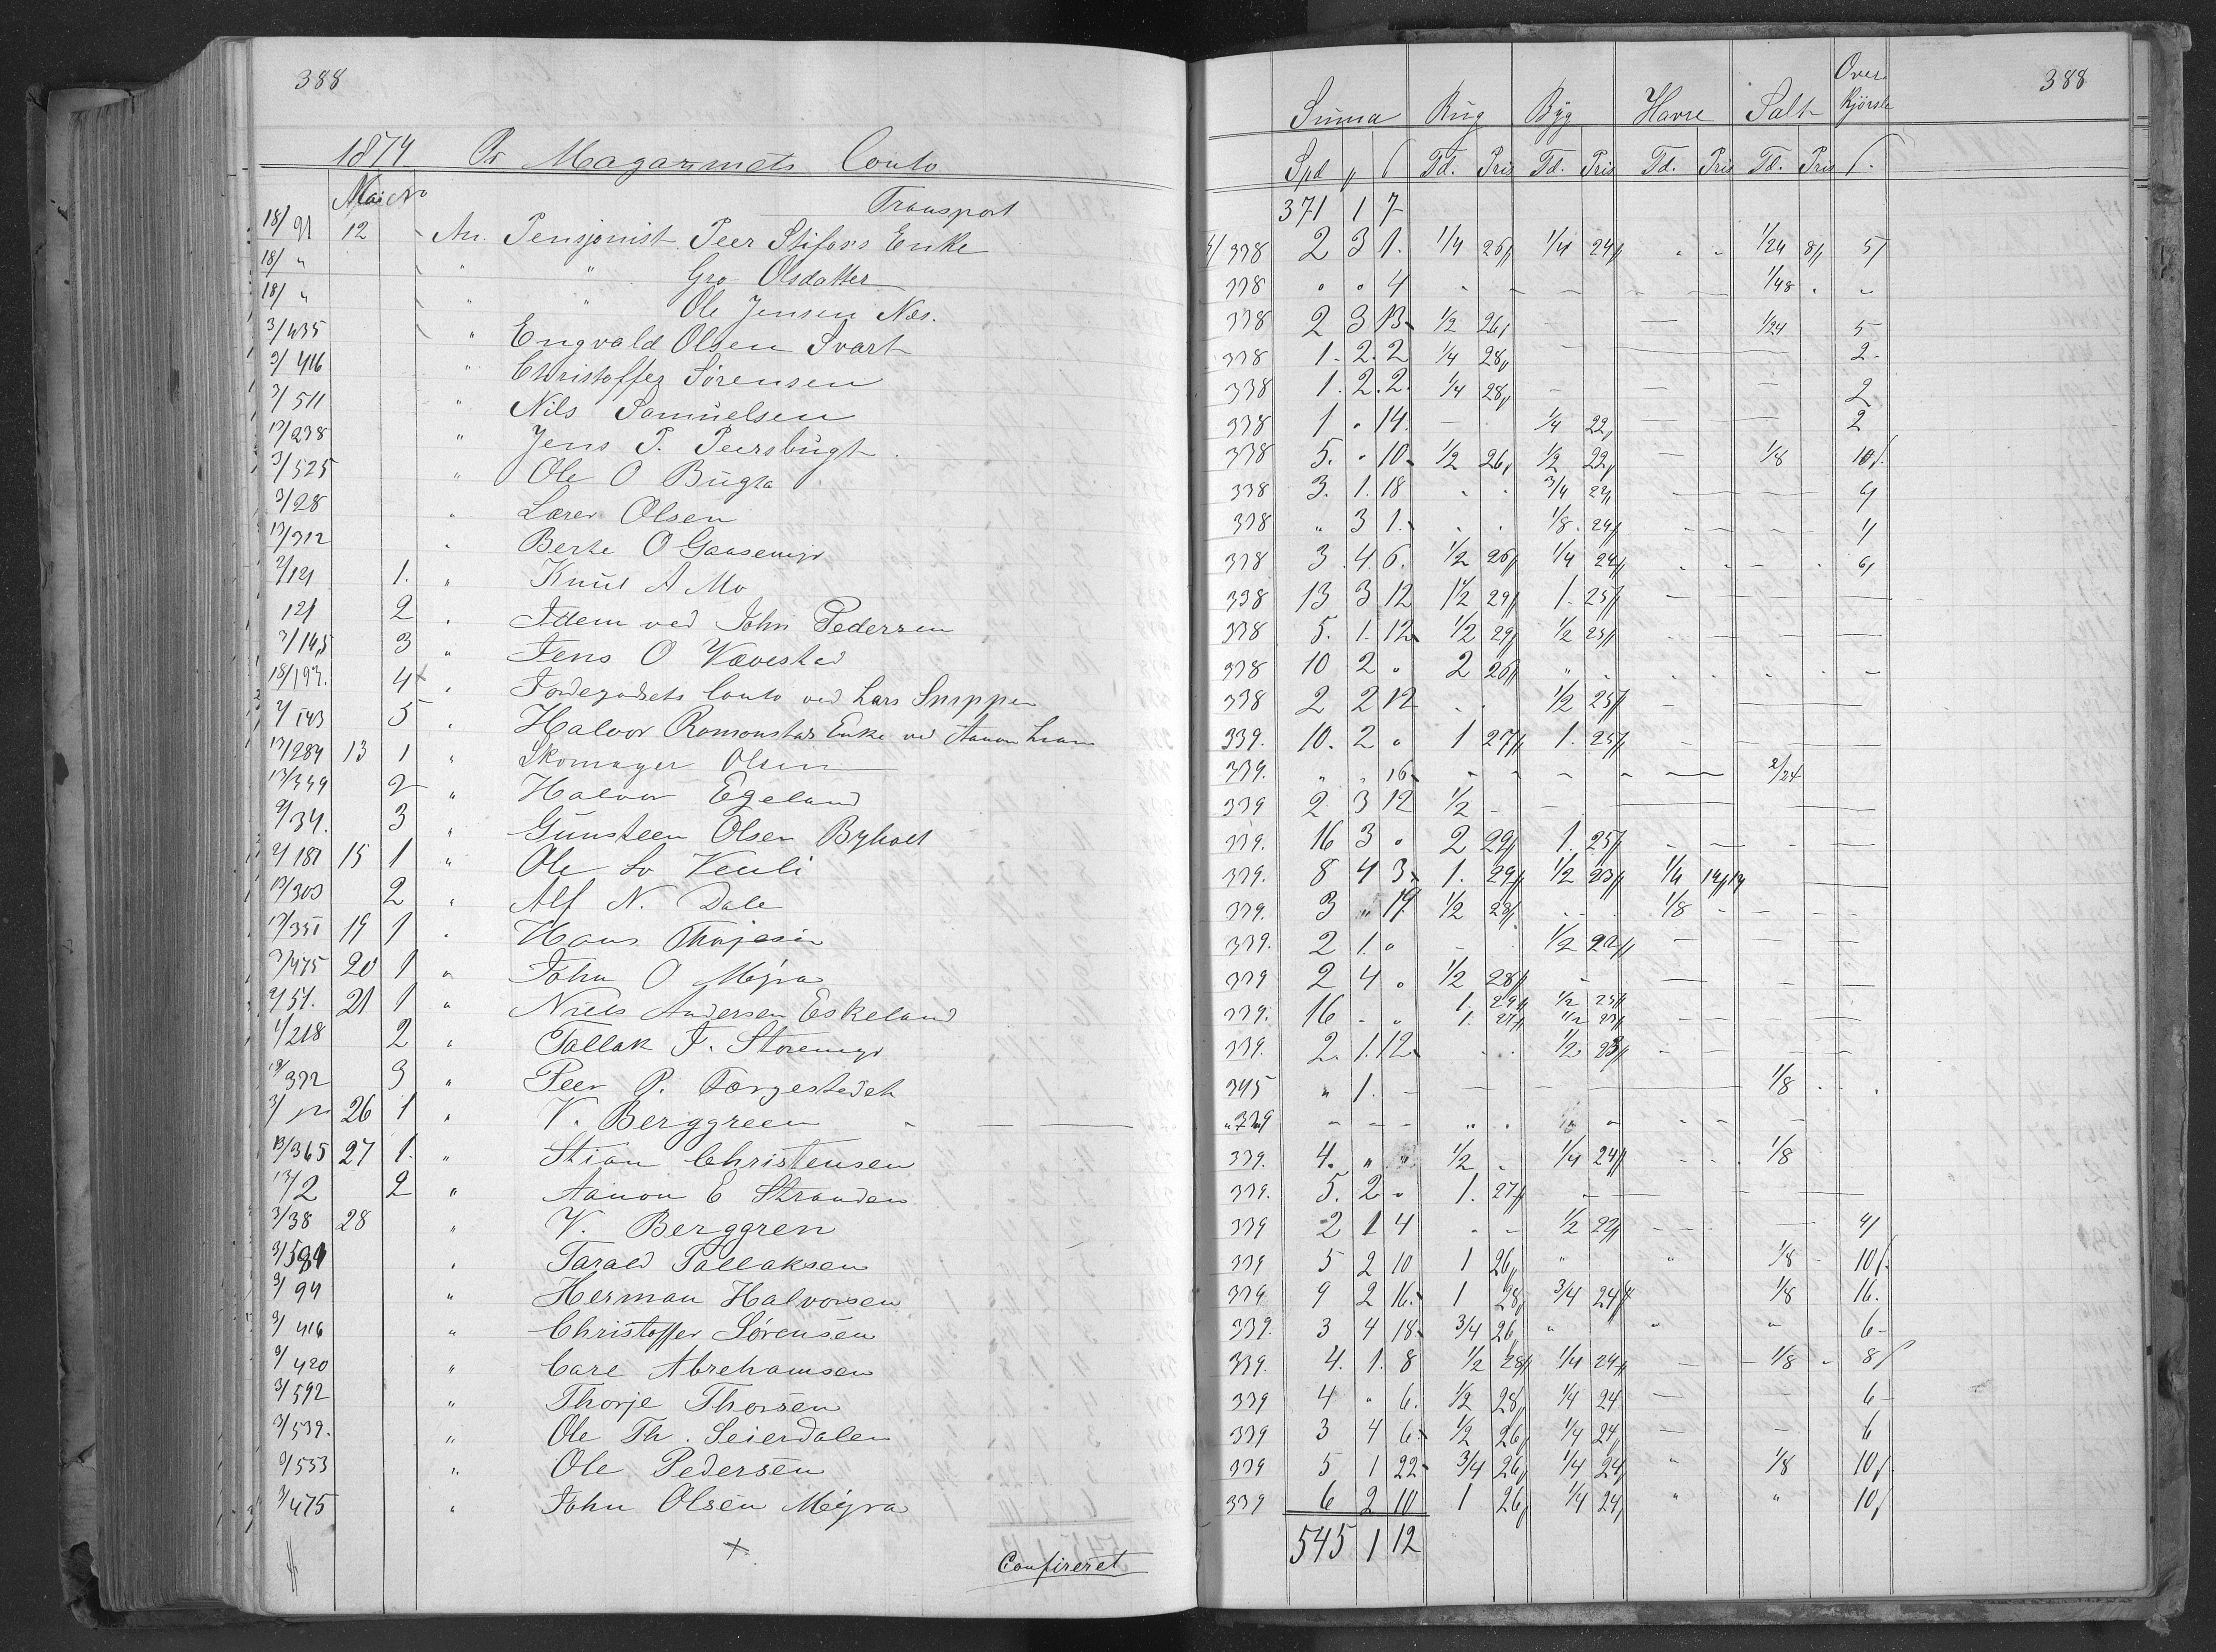 388
1874 Pr Magazinets Conto
Mai No
Transport
18/91 12 An. Pensjonist Peer Stifoss Enke
18/ " " " Gro Olsdatter
18/ " " " Ole Jensen Næs.
3/435 " Engvald Olsen Svart
3/416 " Christoffer Sørensen
3/511 " Nils Samuelsen
13/238 " Jens P. Peersbugt
3/525 " Ole O Bugta
3/28 " Lærer Olsen
13/312 " Berte O Gaasemyr
2/121 1. " Knut A Mo
121 2 " Idem ved John Pedersen
2/145 3 " Jens O Vævestad
18/197. 4 " Jordegodsets Conto ved Lars Snippen
2/143 5 " Halvor Romonstad Enke ved Aanon
13/284 13 1 " Skomager Olsen
13/339 2 " Halvor Egeland
2/34. 3 " Gunsteen Olsen Byholt
2/187 15 1 " Ole Venli
13/303 2 " Alf N. Dale
13/351 19 1 " Hans Thorjesen
3/475 20 1 " John O Myra
2/51. 21 1 " Niels Andersen Eskeland
1/218 2 " Tallak F. Storemyr
13/392 3 " Peer P. Torgestedet
3/ 26 1 " V. Berggreen
13/365 27 1. " Stian Christensen
13/2 2 " Aanon E Stranden
3/38 28 " V. Berggren
3/581 " Tarald Tallaksen
3/94 " Herman Halvorsen
3/416 " Christoffer Sørensen
3/420 " Carl Abrehamsen
3/592 " Thorje Thorsen
3/539. " Ole Th. Seierdalen
3/553 " Ole Pedersen
3/475 " John Olsen Myra
Confireret
388
Summa Rug Byg Havre Salt Over kjørsle
Spd Td. Pris Td. Pris Td. Pris Td. Pris
371 1 7
338 2 3 1. 1/4 26 1/4 24 " " 1/24 8 5
338 " " 4 1/48
338 2 3 13 1/2 26 1/24 5
338 1. 2. 2 1/4 28 2
338 1. 2. 2. 1/4 28 2
338 1 " 14. 1/4 22 2
338 5. " 10 1/2 26 1/2 22 1/8 10
338 3. 1. 18 3/4 22 4
338 " 3 1. 1/8 24 4
338 3. 4. 6. 1/2 26 1/4 24 6
338 13 3 12 1 1/2 29 1. 25
338 5. 1. 12 1/2 29 1/2 23
338 10 2 " 2 26
338 2 2 12 1/2 25
339. 10. 2 " 1 27 1. 25
339. " " 16 2/24
339 2 3 12 1/2
339. 16 3 " 2 29 1. 25
339. 8 4 3 1. 29 1/2 23 1/4 14
339. 3 " 19 1/2 28 1/8
339. 2 1. " 1/2 22
339 2 4 " 1/2 28
339. 16 1. 29 1/2 25
1. 27 1/2 23
339. 2. 1. 12 1/2 23
345 " 1. 1/8
339
339. 4. " " 1/2 1/4 24 1/8
339. 5. 2 " 1. 27
339 2 1 4 1/2 22 4
339 5 2 10 1 26 " " 1/8 10
339 9 2 16. 1 28 3/4 24 1/8 16.
339. 3 4 18 3/4 26 " " " 6
339. 4. 1. 8 1/2 28 1/4 24 1/8 8
339 4 " 6. 1/2 28 1/4 24 6
339 3 4 6 1/2 26 1/4 24 6
339 5 1 22 3/4 26 1/4 24 " 1/8 10
339 6 2 10 1 26 1/4 24 " " 10
545 1 12